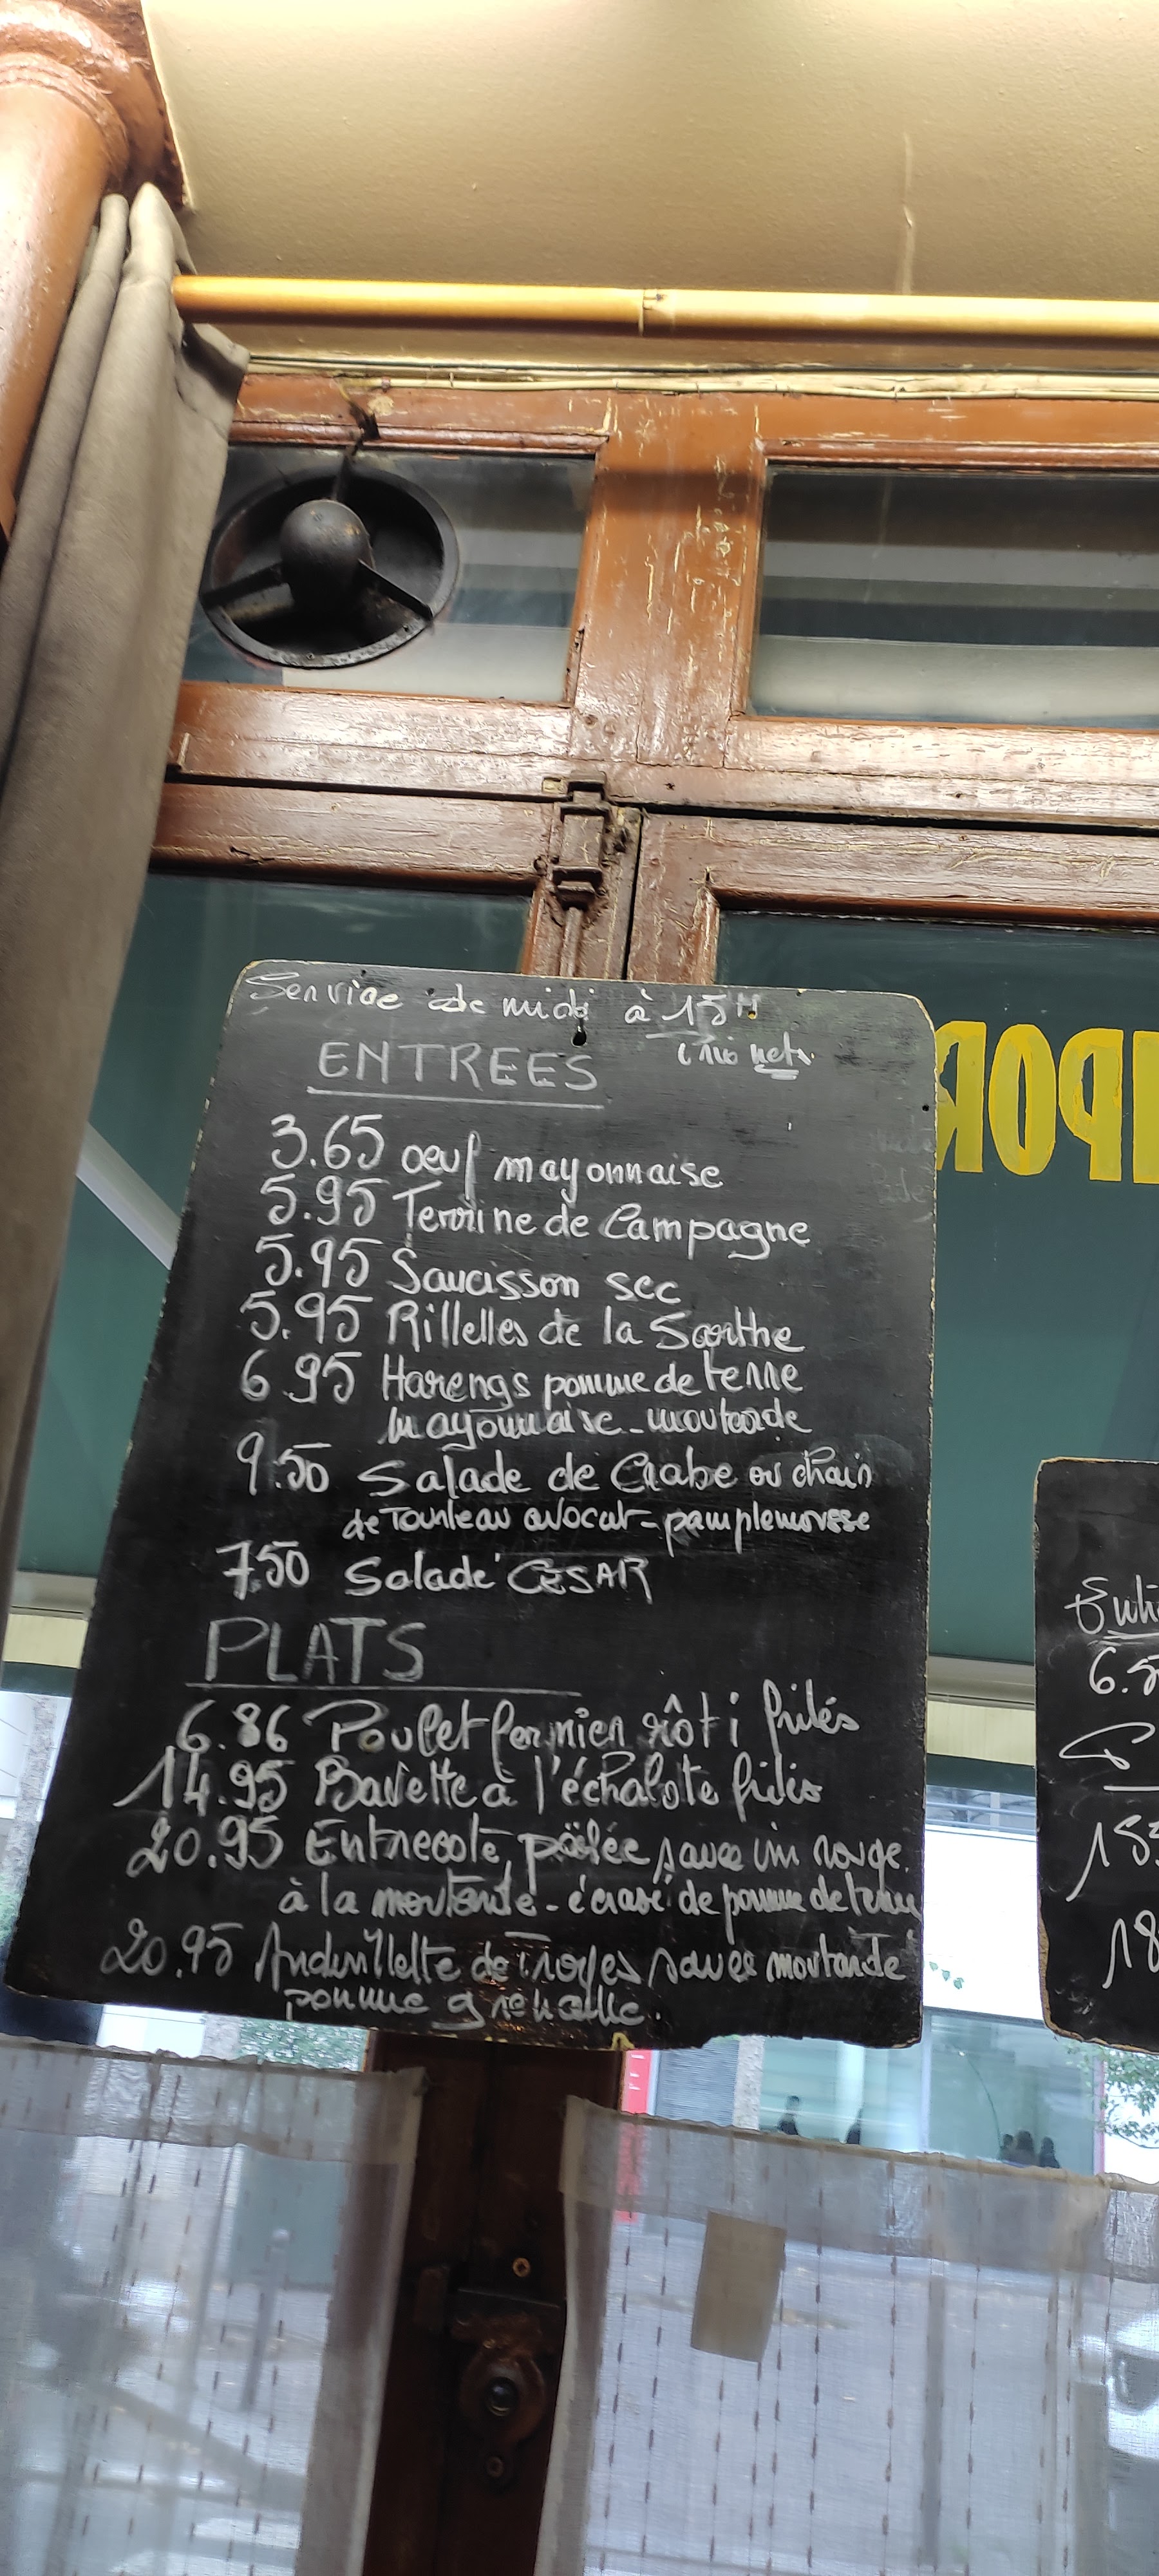 Service de midi à 15H
Prix nets.
ENTREES
3.65 oeuf mayonnaise
5.95 Terrine de Campagne
5.95 Saucisson sec
5.95 Rillettes de la Sarthe
6.95 Harengs pomme de terre
mayonnaise - moutarde
9.50 Salade de Crabe ou chair
de Tourteau avocat - pamplemousse
7.50 Salade CESAR
PLATS
6.86 Poulet fermier rôti frites
14.95 Bavette à l'échalote frites
20.95 Entrecote, poêlée sauce vin rouge
à la moutarde - écrasé de pomme de terre
20.95 Andouillette de Troyes sauce moutarde
pomme grenaille.
POR
6.5
155
18